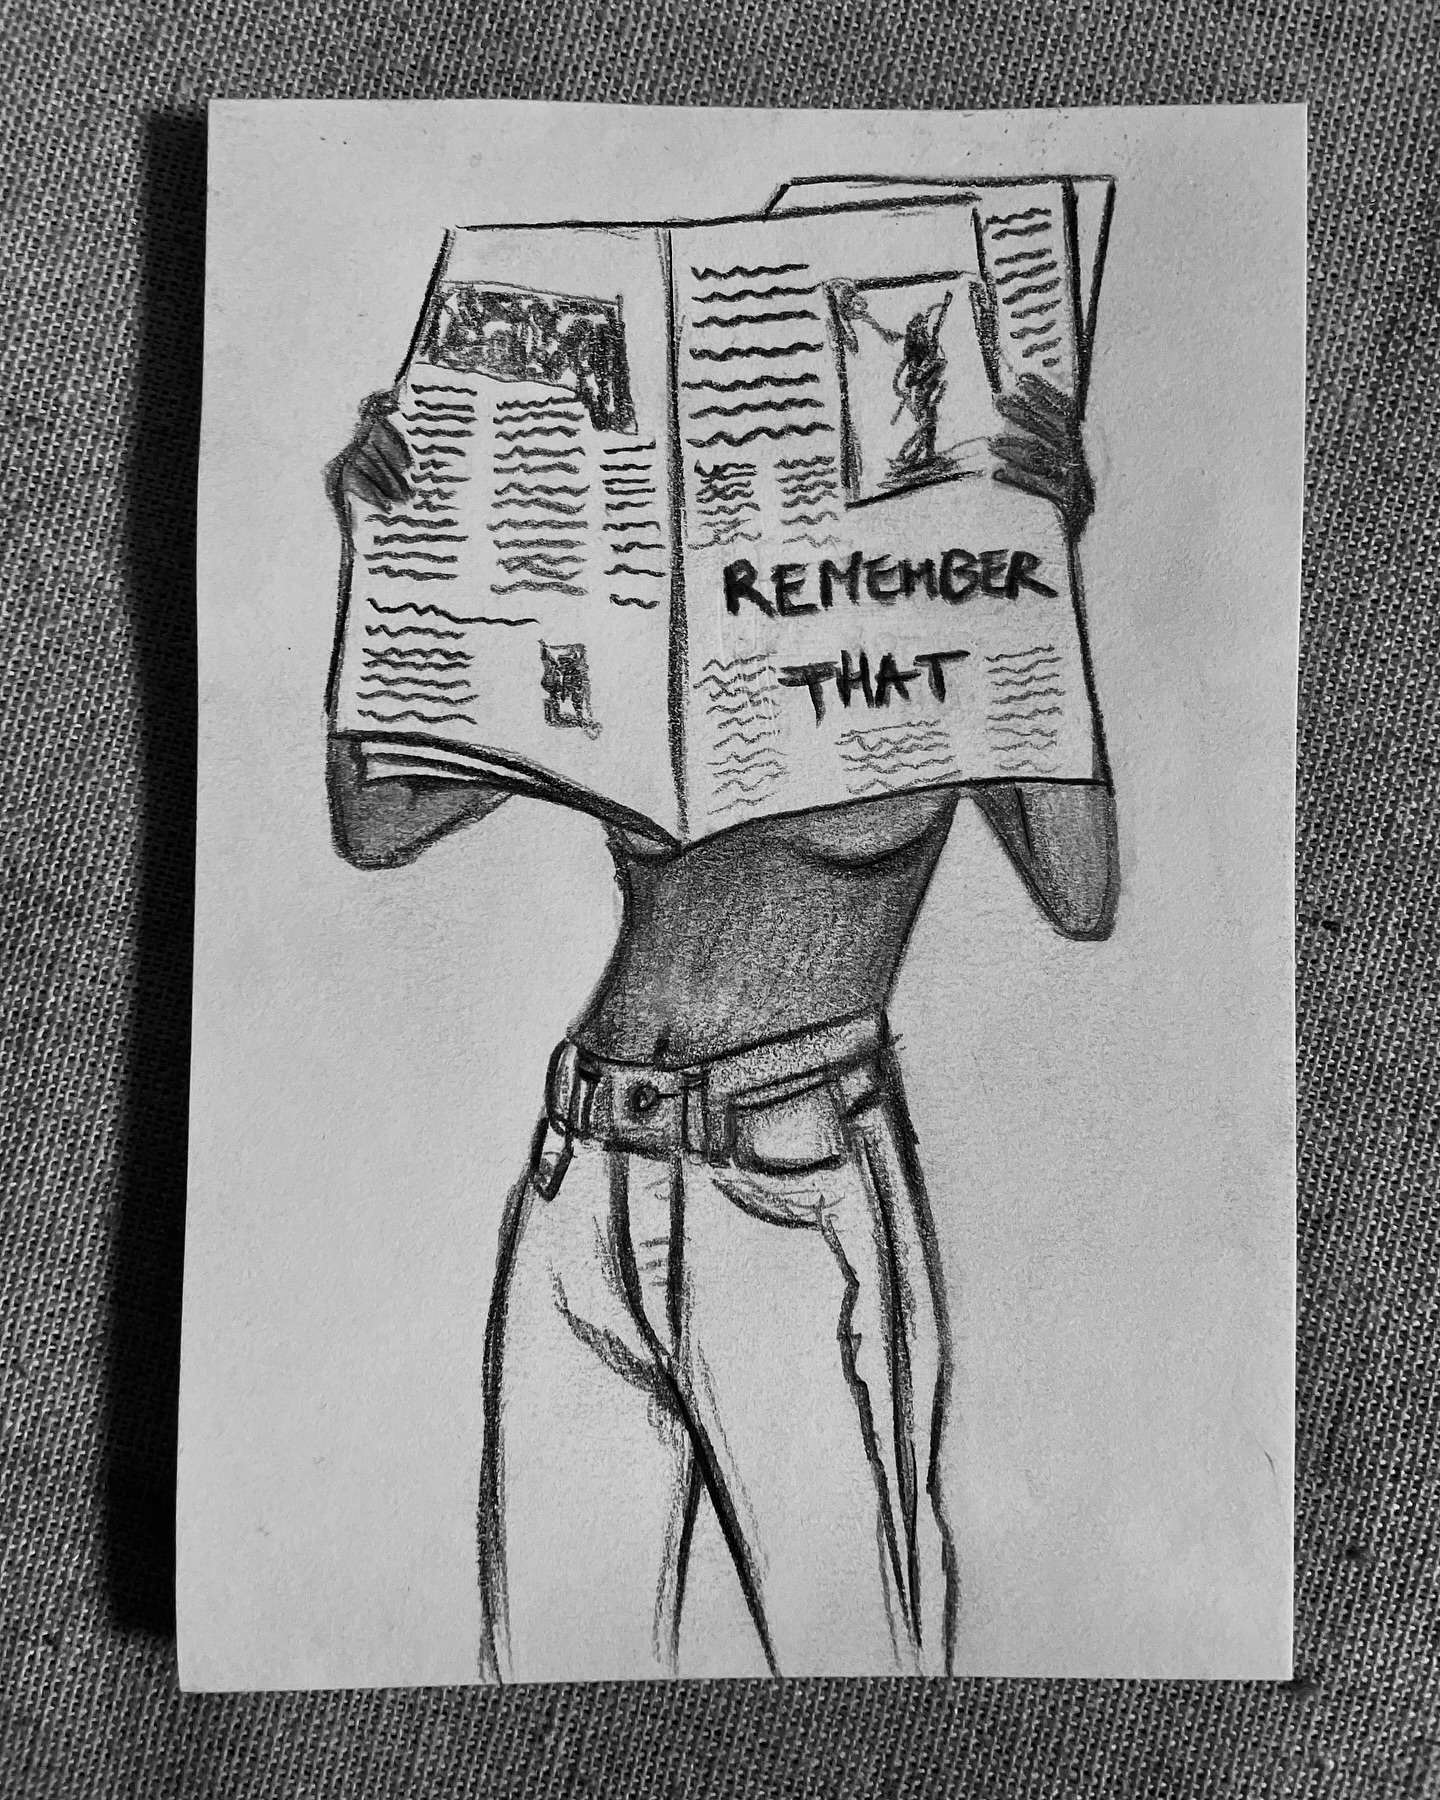 REMEMBER
THAT